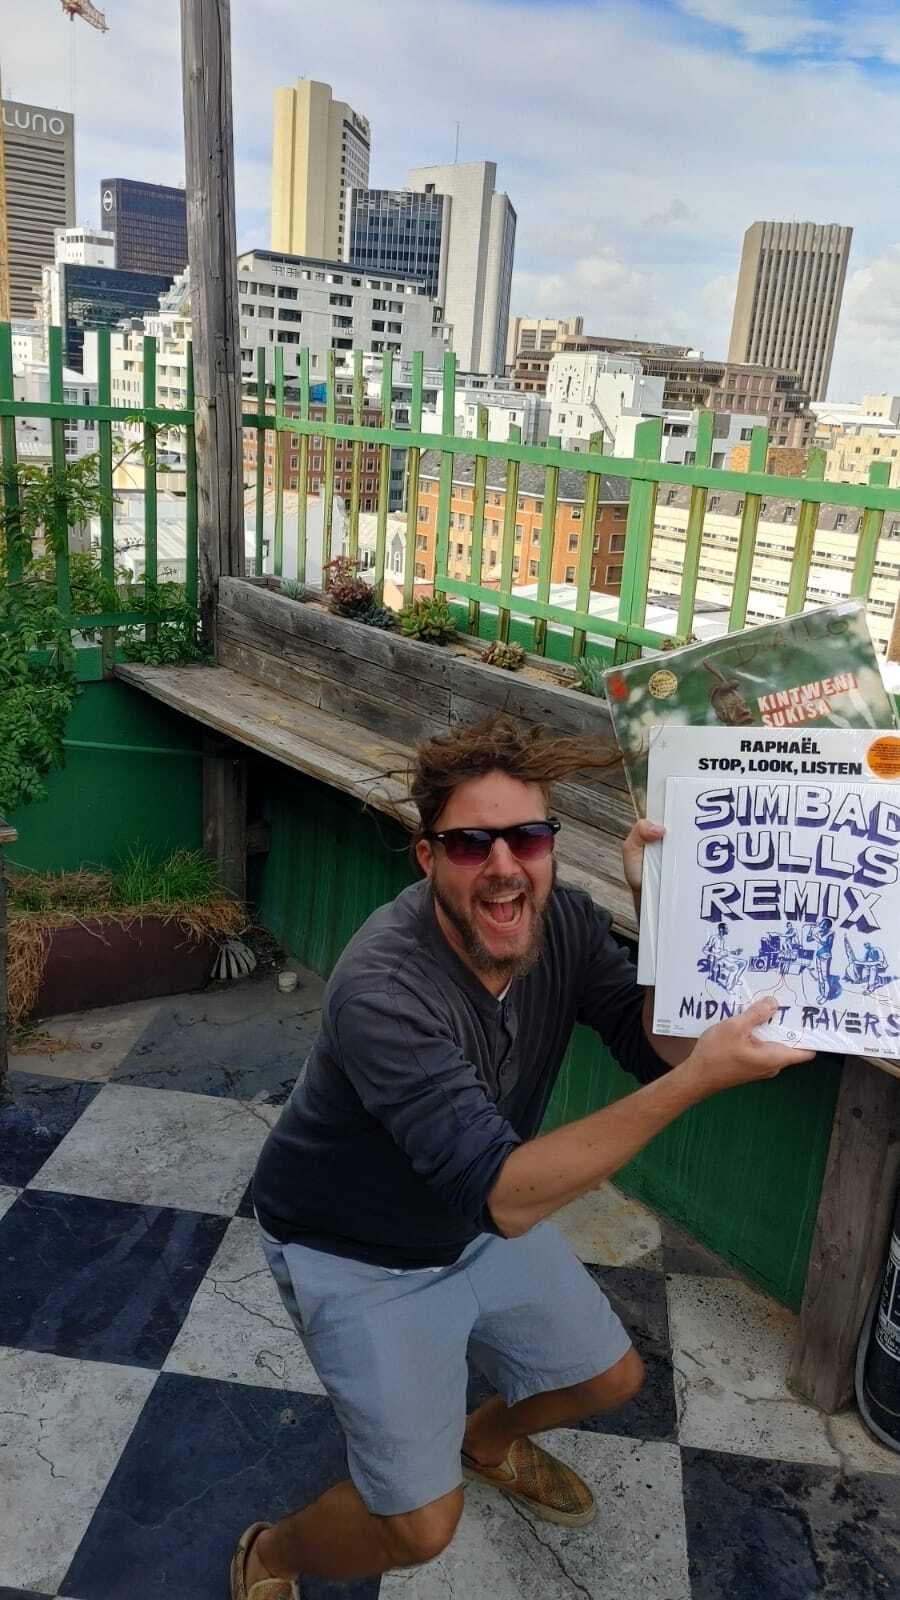 LUNO
KINTWENI
SUKISA
RAPHAËL
STOP, LOOK, LISTEN
SIMBAD
GULLS
REMIX
MIDNIGHT RAVERS